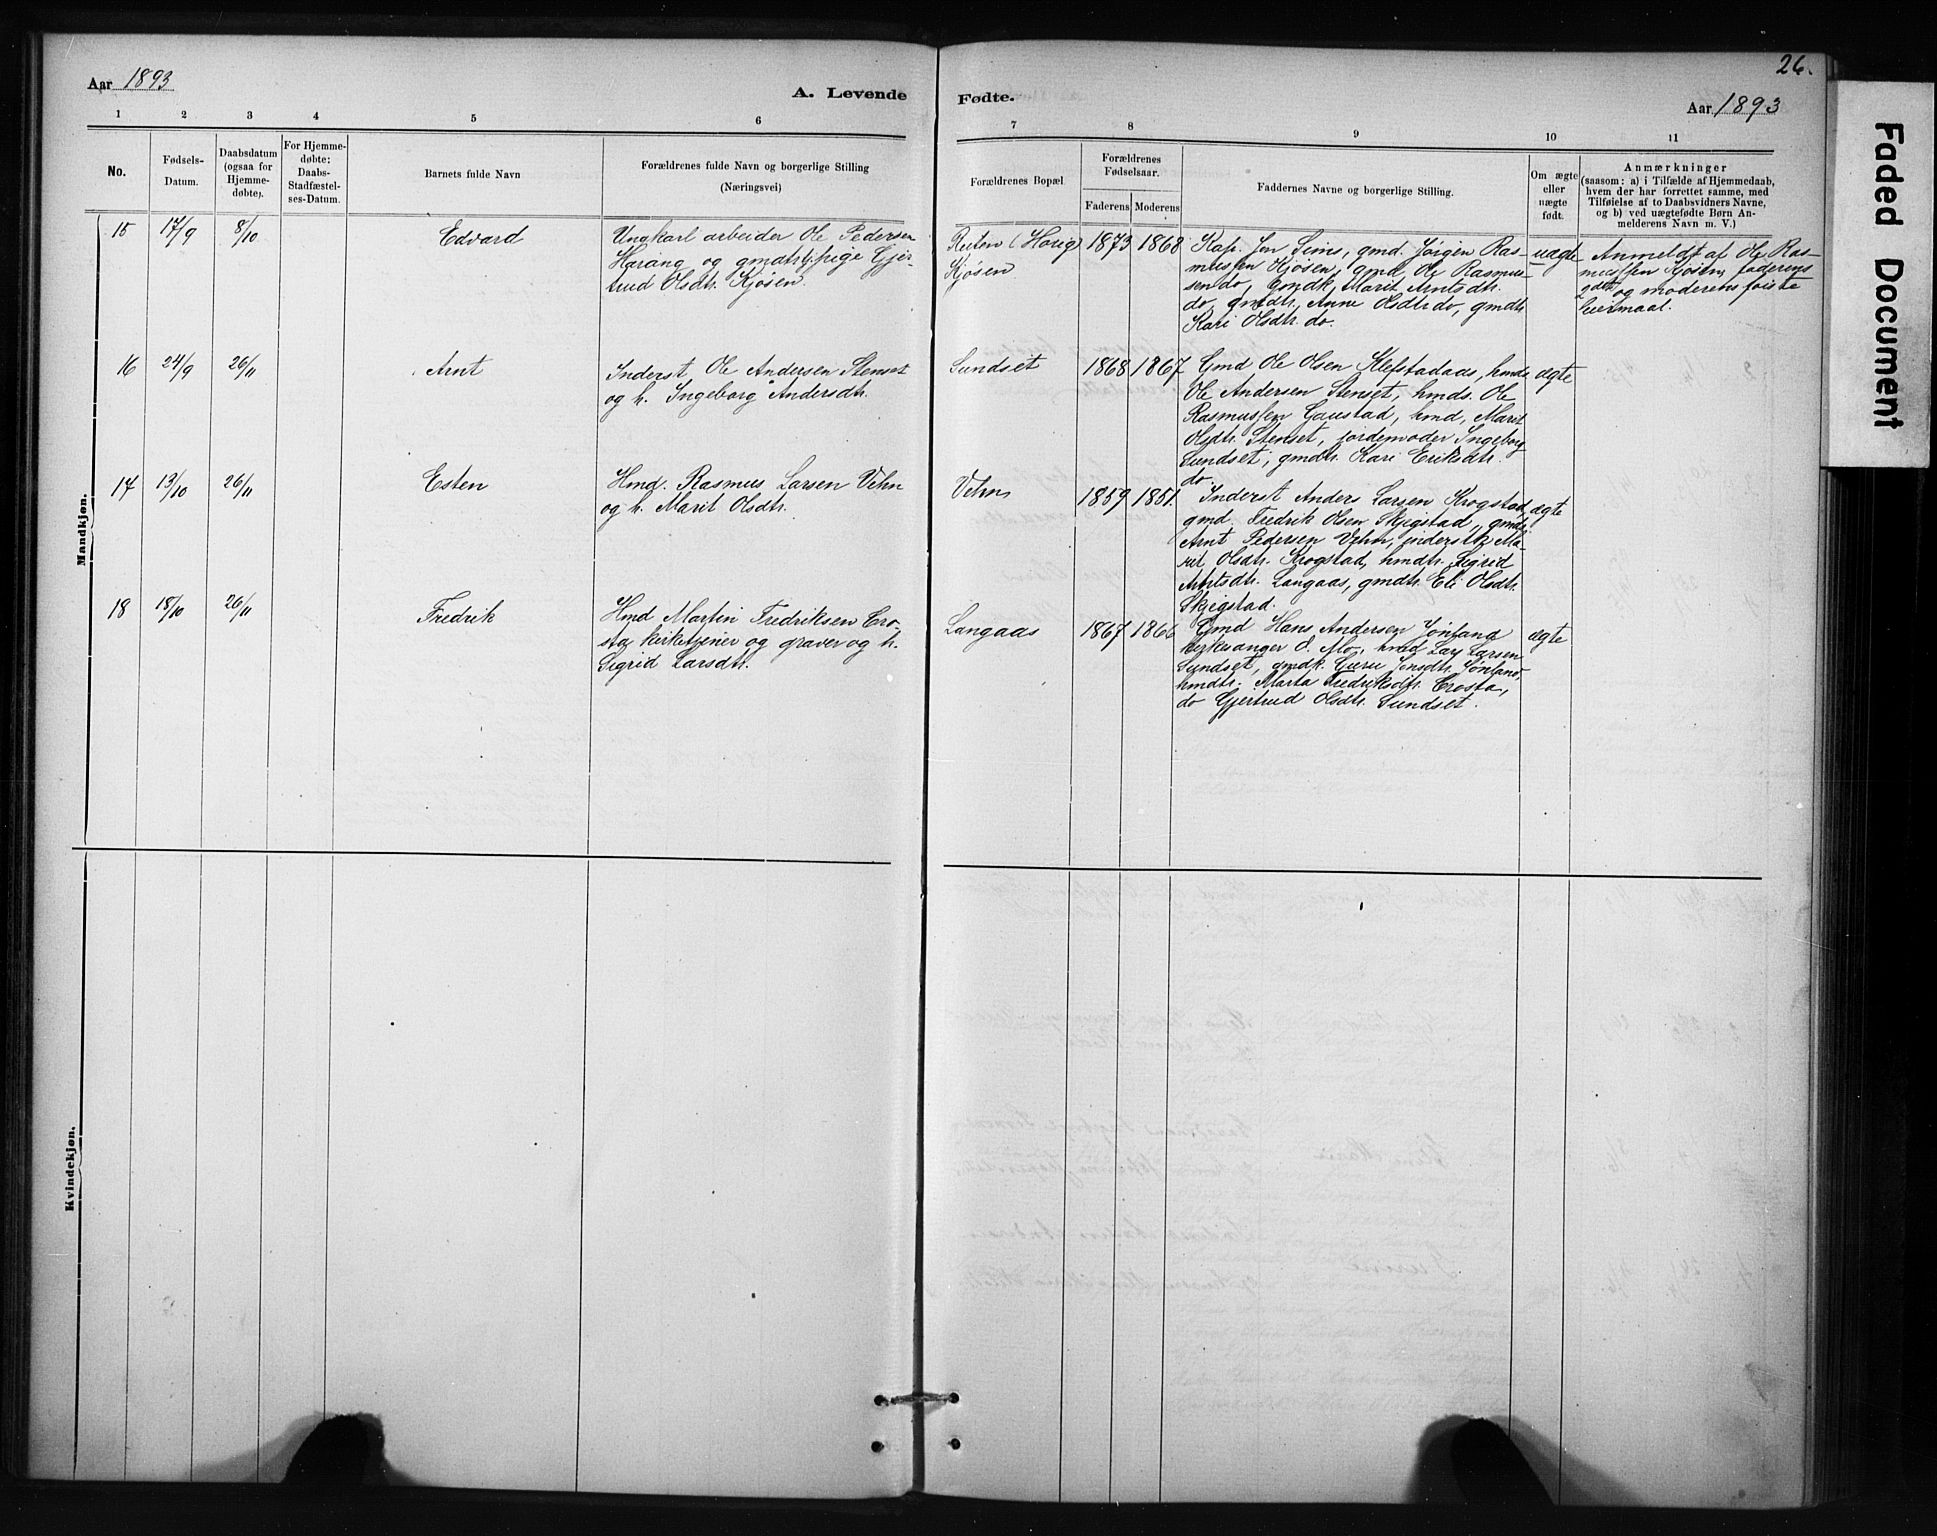 26.
Aar 1893
A. Levende
Fødte.
Aar 1893
1 2 3 4 5 6
7 8 9 10 11
No.
Fødsels-
Datum.
Daabsdatum
(ogsaa for
Hjemme-
døbte).
For Hjemme-
døbte:
Daabs-
Stadfæstel-
ses-Datum.
Barnets fulde Navn
Forældrenes fulde Navn og borgerlige Stilling
(Næringsvei)
Forældrenes Bopæl.
Forældrenes
Fødselsaar.
Faderens Moderens
Faddernes Navne og borgerlige Stilling.
Om ægte
eller
uægte
født.
Anmærkninger
(saasom: a) i Tilfælde af Hjemmedaab,
hvem der har forrettet samme, med
Tilføielse af to Daabsvidners Navne,
og b) ved uægtefødte Børn An-
melderens Navn m. V.)
Mandkjøn.
15 17/9 8/10 Edvard
Ungkarl arbeider Ole Pedersen
Harang og gmdtr pige Gjer-
trud Olsdtr. Kjøsen
Kjøsen
1873 1868
Jon Sems, gmd. Jørgen Ras-
mussen Kjøsen, gmd. Ole Rasmus-
sen do, gmdk. Marit Arntsdtr.
do, gmdtr. Anne Olsdtr. do, gmdtr
Kari Olsdtr. do.
uægte
Anmeldt af Ole Ras-
mussen Kjøsen, faderens
2det og moderens første
leiermaal.
16 24/9 26/11 Arnt
Inderst Ole Andersen Stenset
og h. Ingeborg Andersdtr.
Sundset
1868 1867
Gmd Ole Olsen Klefstadaas, hmds
Ole Andersen Stenset, hmds. Ole
Rasmussen Gaustad, hmd, Marit
Olsdtr. Stenset, jordemoder Ingeborg
Sundset, gmdtr. Kari Eriksdtr.
do.
ægte
17 13/10 26/11 Esten
Hmd. Rasmus Larsen Vehn
og h. Marit Olsdtr.
Vehn
1859 1851.
Inderst Anders Larsen Krogstad,
gmd. Fredrik Olsen Skjegstad, gmds.
Arnt Pedersen Vehn, inderstk Ma-
rit Olsdtr. Krogstad, hmdtr. Sigrid
Arntsdtr. Langaas, gmdtr. Eli Olsdtr.
Skjegstad.
ægte
18 18/10 26/11 Fredrik
Hmd Martin Fredriksen Cro-
sta, kirketjener og graver og h.
Sigrid Larsdtr.
Langaas
1867 1866
Gmd Hans Andersen Jønland
kirkesanger O. Mo, hmd Lars Larsen
Sundset, gmdk. Guru Jonsdtr. Jønland,
hmdtr. Marta Fredriksdtr. Crosta,
do Gjertrud Olsdtr. Sundset.
ægte
Kvindekjøn.
Faded Document